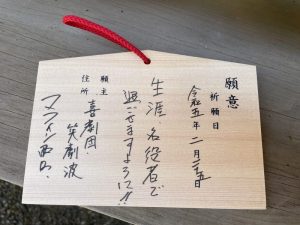 願意
祈願日
令和五年 二月二五日
生涯、名役者で
過ごせますように!!
願主
住所
喜劇団・
笑劇波